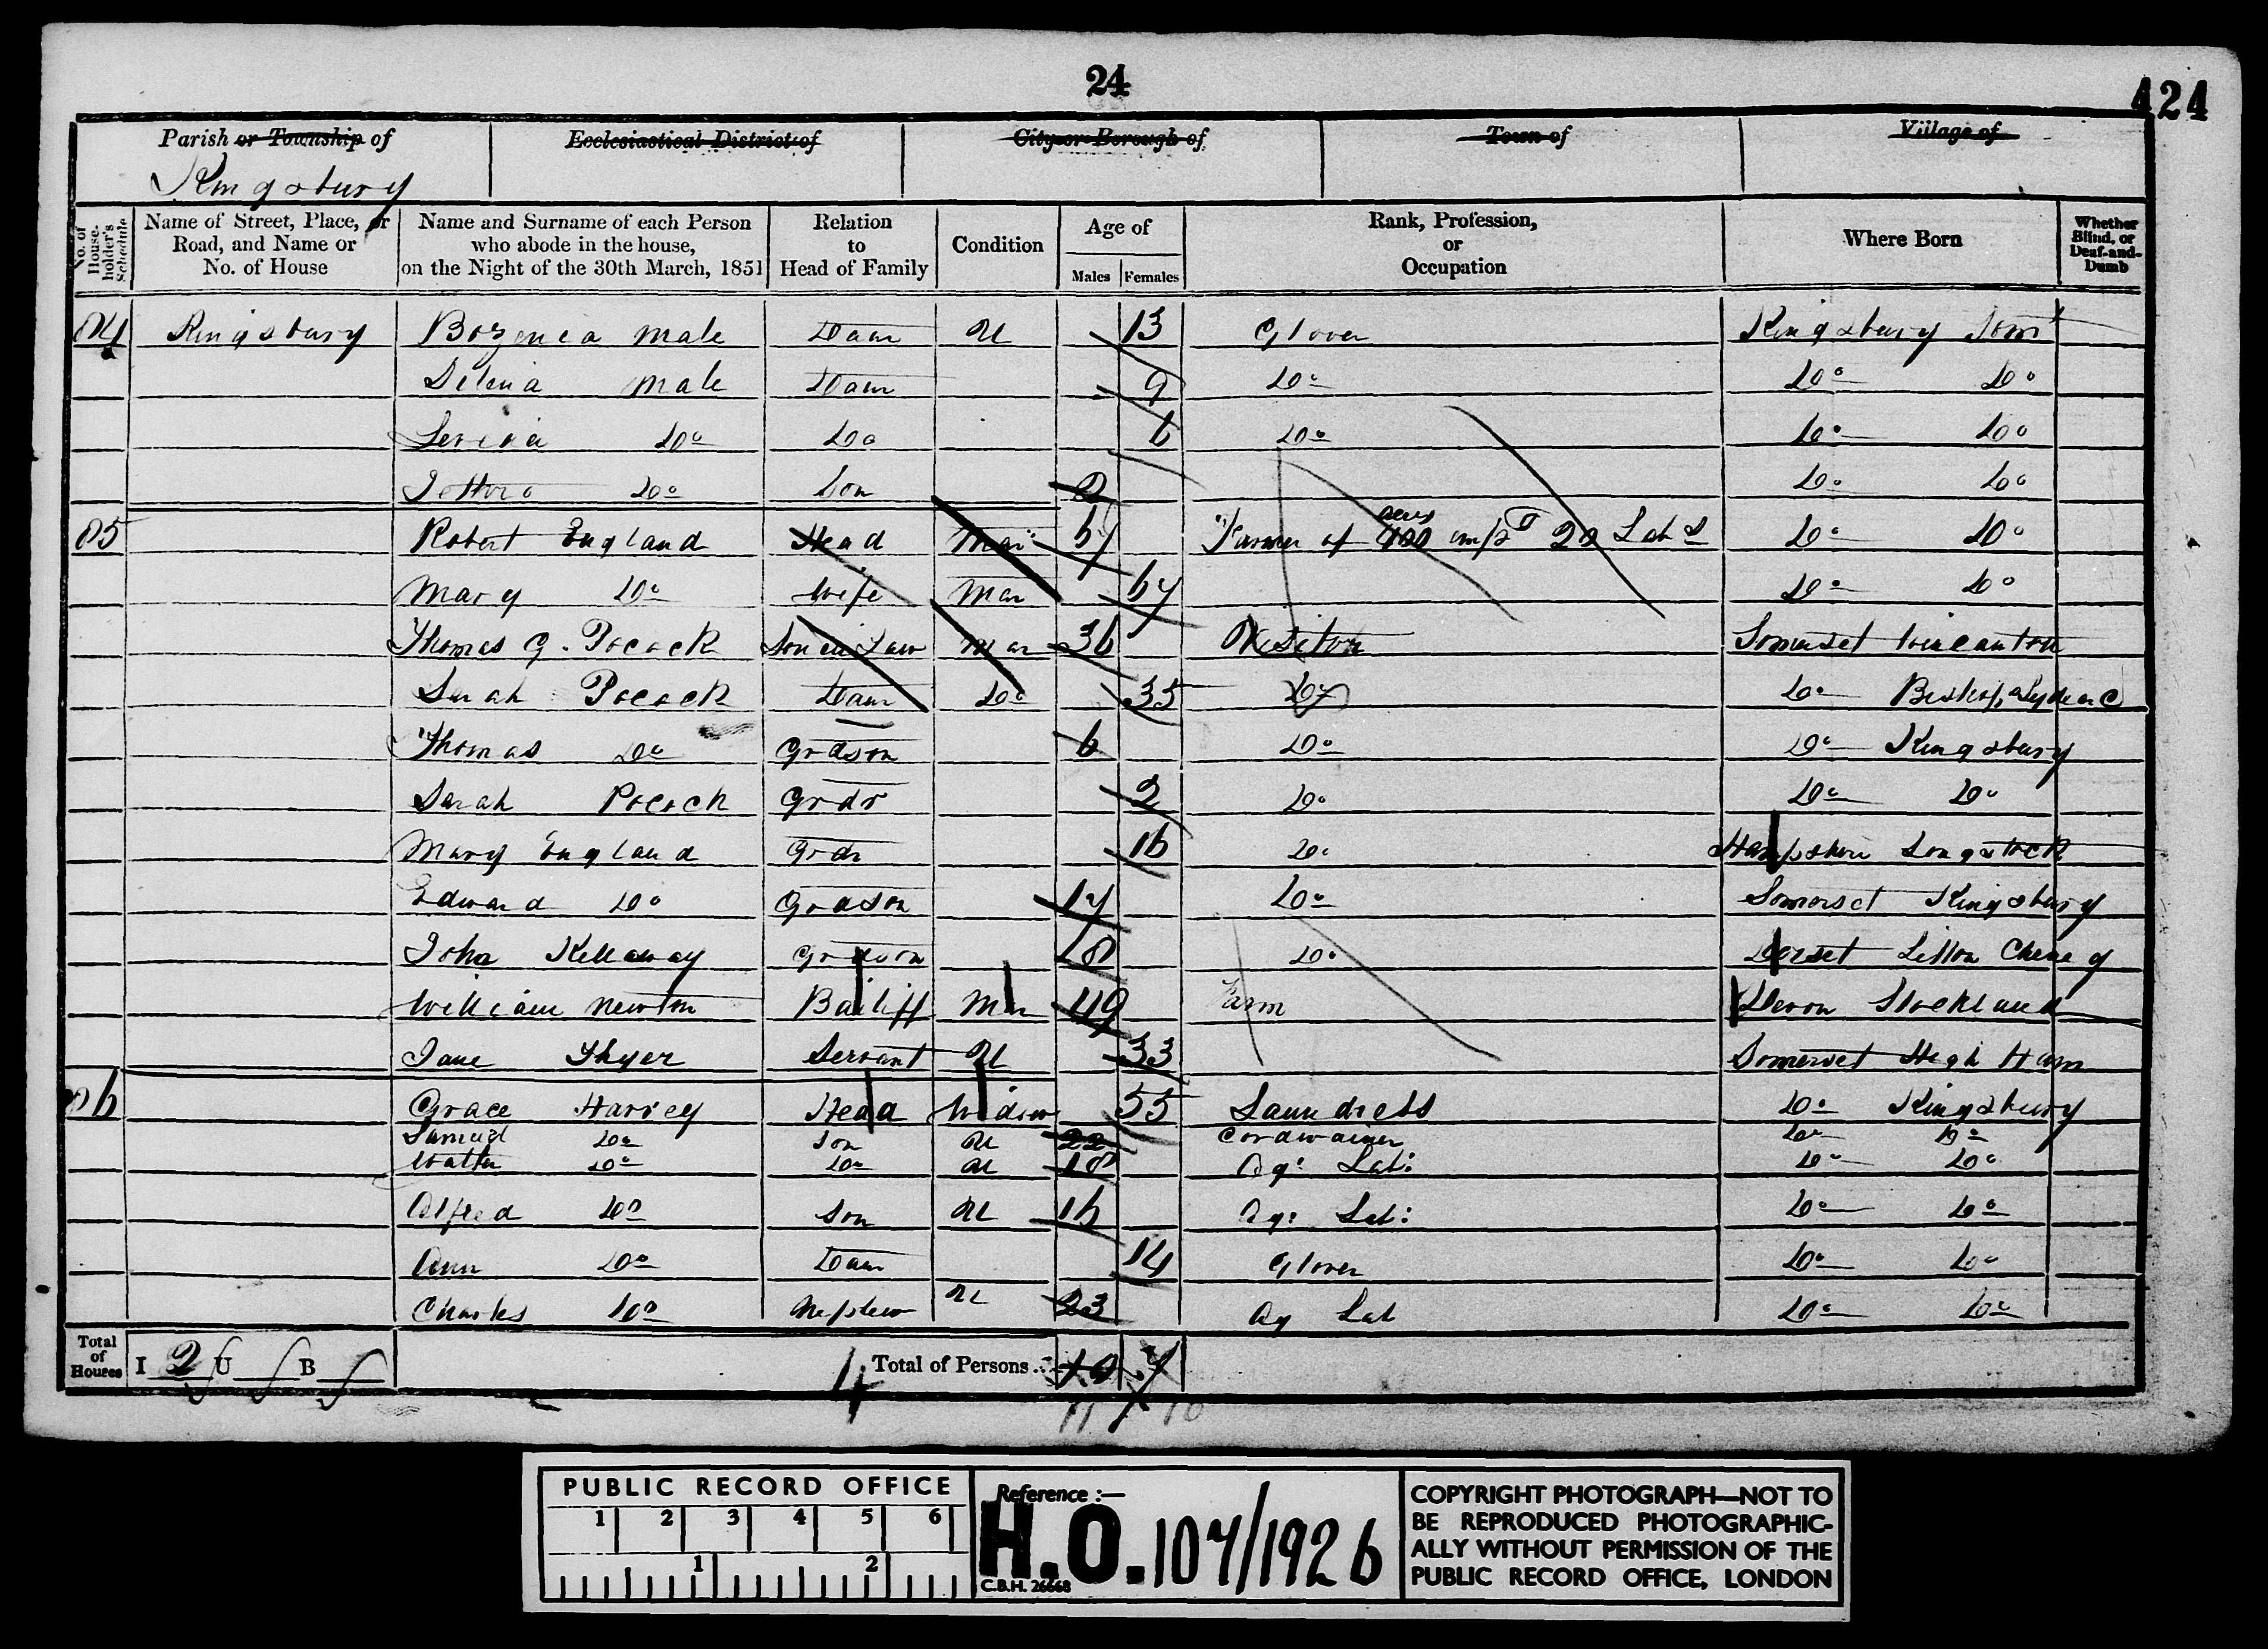 24
424
Parish or Township of
Ecclesiastical District of
City or Borough of
Town of
Village of
Kingsbury
No. of House-holder's Schedule
Name of Street, Place, or Road, and Name or No. of House
Name and Surname of each Person who abode in the house, on the Night of the 30th March, 1851
Relation to Head of Family
Condition
Age of
Males
Females
Rank, Profession, or Occupation
Where Born
Whether Blind, or Deaf-and-Dumb
84 Kingsbury male Daur U 13 Glover Kingsbury Somt
male Daur 9 Do Do Do
Do Do 6 Do Do Do
Do Son 2 Do Do
85 Robert England Head Mar 67 Farmer of 400 acres empg 20 Labs Do Do
Mary Do Wife Mar 67 Do Do
Thomas G. Pocock Son in Law Mar 36 Visitor Somerset Wincanton
Sarah Pocock Daur Do 35 Do Do Bishops Lydeard
Thomas Do Grdson 6 Do Do Kingsbury
Sarah Pocock Grdr 2 Do Do Do
Mary England Grdr 16 Do Hampshire Longstock
Edward Do Grdson 17 Do Somerset Kingsbury
John Kellaway Grdson 18 Do Dorset Litton Cheney
William Newton Bailiff Mar 49 Farm Devon Stockland
Jane Thyer Servant U 33 Somerset High Ham
86 Grace Harvey Head Widow 55 Laundress Do Kingsbury
Samuel Do Son U 22 Cordwainer Do Do
Walter Do Do U 18 Ag: Lab: Do Do
Alfred Do Son U 16 Ag: Lab: Do Do
Ann Do Daur 14 Glover Do Do
Charles Do Nephew U 23 Ag Lab Do Do
Total of Houses
I 2 U B
4
Total of Persons
11 10
PUBLIC RECORD OFFICE
1 2 3 4 5 6
1 2
Reference :—
H.O. 107/1926
C.B.H. 26668
COPYRIGHT PHOTOGRAPH—NOT TO
BE REPRODUCED PHOTOGRAPHIC-
ALLY WITHOUT PERMISSION OF THE
PUBLIC RECORD OFFICE, LONDON